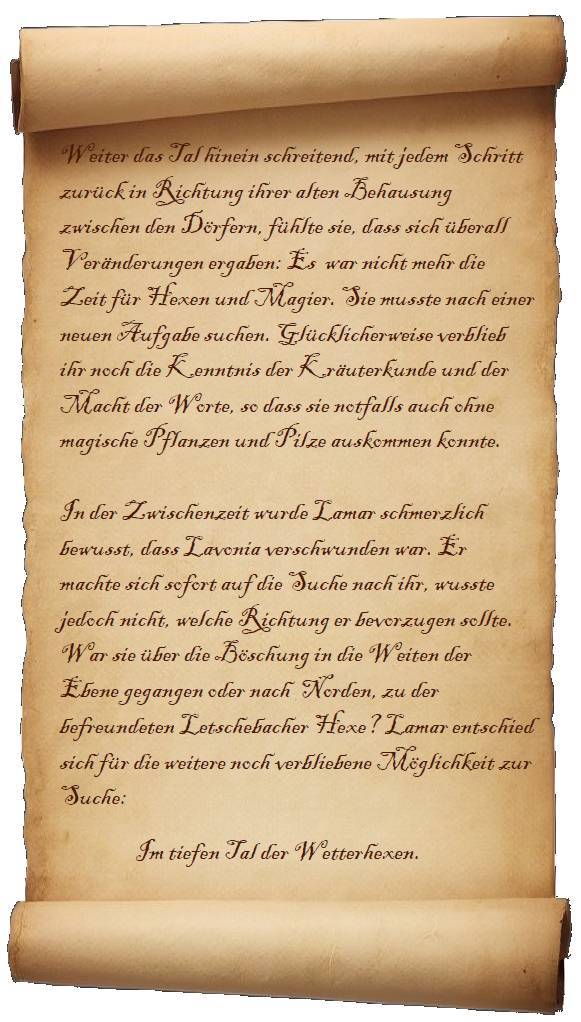 Weiter das Tal hinein schreitend, mit jedem Schritt
zurück in Richtung ihrer alten Behausung
zwischen den Dörfern, fühlte sie, dass sich überall
Veränderungen ergaben: Es war nicht mehr die
Zeit für Hexen und Magier. Sie musste nach einer
neuen Aufgabe suchen. Glücklicherweise verblieb
ihr noch die Kenntnis der Kräuterkunde und der
Macht der Worte, so dass sie notfalls auch ohne
magische Pflanzen und Pilze auskommen konnte.

In der Zwischenzeit wurde Lamar schmerzlich
bewusst, dass Lavonia verschwunden war. Er
machte sich sofort auf die Suche nach ihr, wusste
jedoch nicht, welche Richtung er bevorzugen sollte.
War sie über die Böschung in die Weiten der
Ebene gegangen oder nach Norden, zu der
befreundeten Letschebacher Hexe? Lamar entschied
sich für die weitere noch verbliebene Möglichkeit zur
Suche:

Im tiefen Tal der Wetterhexen.